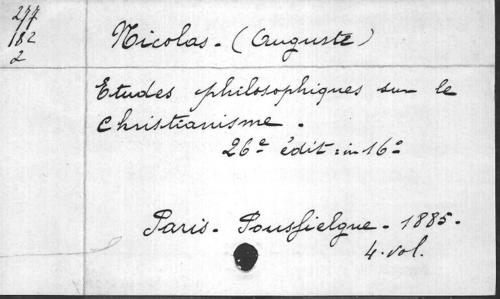 277
182
2
Nicolas - (Auguste)
Etudes philosophiques sur le
Christianisme -
26e édit: in 16°
Paris - Pousfielgue - 1885 -
4 vol.